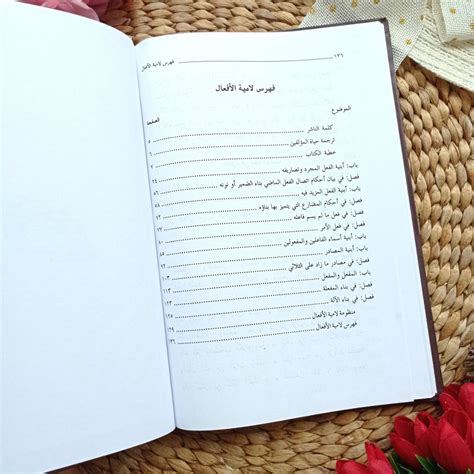 ١٣٦ فهرس لامية الأفعال
فهرس لامية الأفعال
الموضوع الصفحة
كلمة الناشر ٥
ترجمة حياة المؤلفين ٦
خطبة الكتاب ٧
باب: أبنية الفعل المجرد وتصاريفه
فصل: في بيان أحكام اتصال الفعل الماضي بتاء الضمير أو نونه ٤٤
باب: أبنية الفعل المزيد فيه ٥٦
فصل: في أحكام المضارع التي يتميز بها بناؤه ٥٨
فصل: في فعل ما لم يسم فاعله
فصل: في فعل الأمر ٧٢
باب: أبنية أسماء الفاعلين والمفعولين ٧٧
باب: أبنية المصادر ٨٥
فصل: في مصادر ما زاد على الثلاثي ٩٢
باب: المفعل والمفعل ١٠٣
فصل: في بناء المفعلة ١١٣
فصل: في بناء الآلة
منظومة لامية الأفعال ١٢٥
فهرس لامية الأفعال ١٣٦